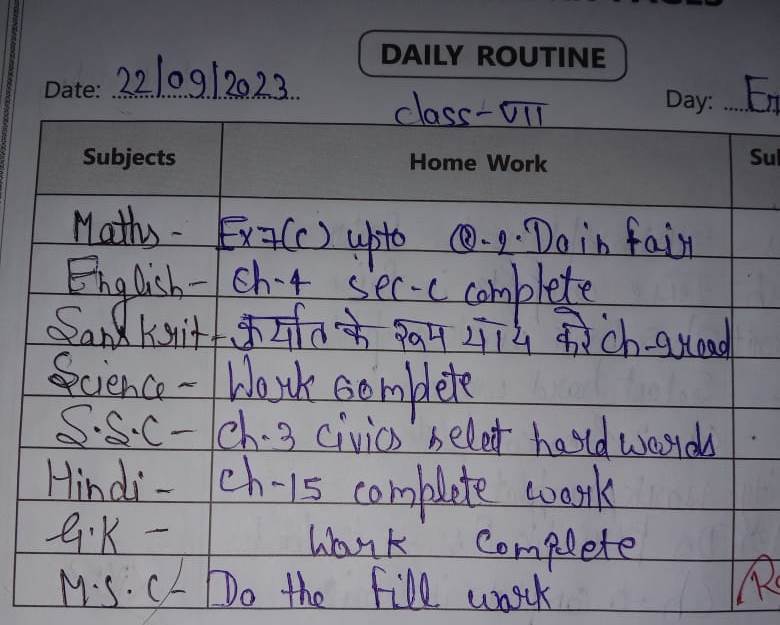 DAILY ROUTINE
Date: 22/09/2023 Day:
class-VII
Subjects Home Work
Maths - Ex 7(c) upto Q-2. Do in fair
English - Ch-4 sec-c complete
Sanskrit - के याद करे ch-9 read
Science - Work complete
S.S.C - Ch-3 civics select hard words
Hindi - Ch-15 complete work
G.K - Work Complete
M.S.C - Do the fill work